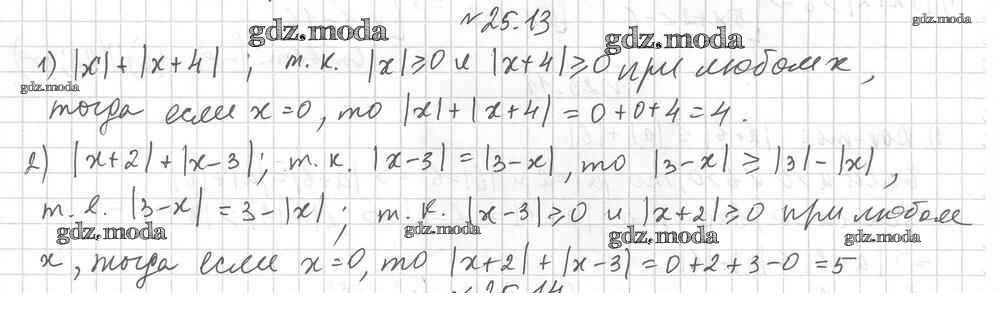 №25.13
gdz.moda gdz.moda gdz.moda
1) |x| + |x+4| ; т.к. |x|≥0 и |x+4|≥0 при любом x,
gdz.moda
тогда если x=0, то |x|+|x+4| = 0+0+4=4.
2) |x+2|+|x-3|; т.к. |x-3| = |3-x|, то |3-x| ≥ |3|-|x|,
т.е. |3-x| = 3-|x| ; т.к. |x-3|≥0 и |x+2|≥0 при любом
gdz.moda gdz.moda gdz.moda gdz.moda
x, тогда если x=0, то |x+2|+|x-3|=0+2+3-0=5
№25.14